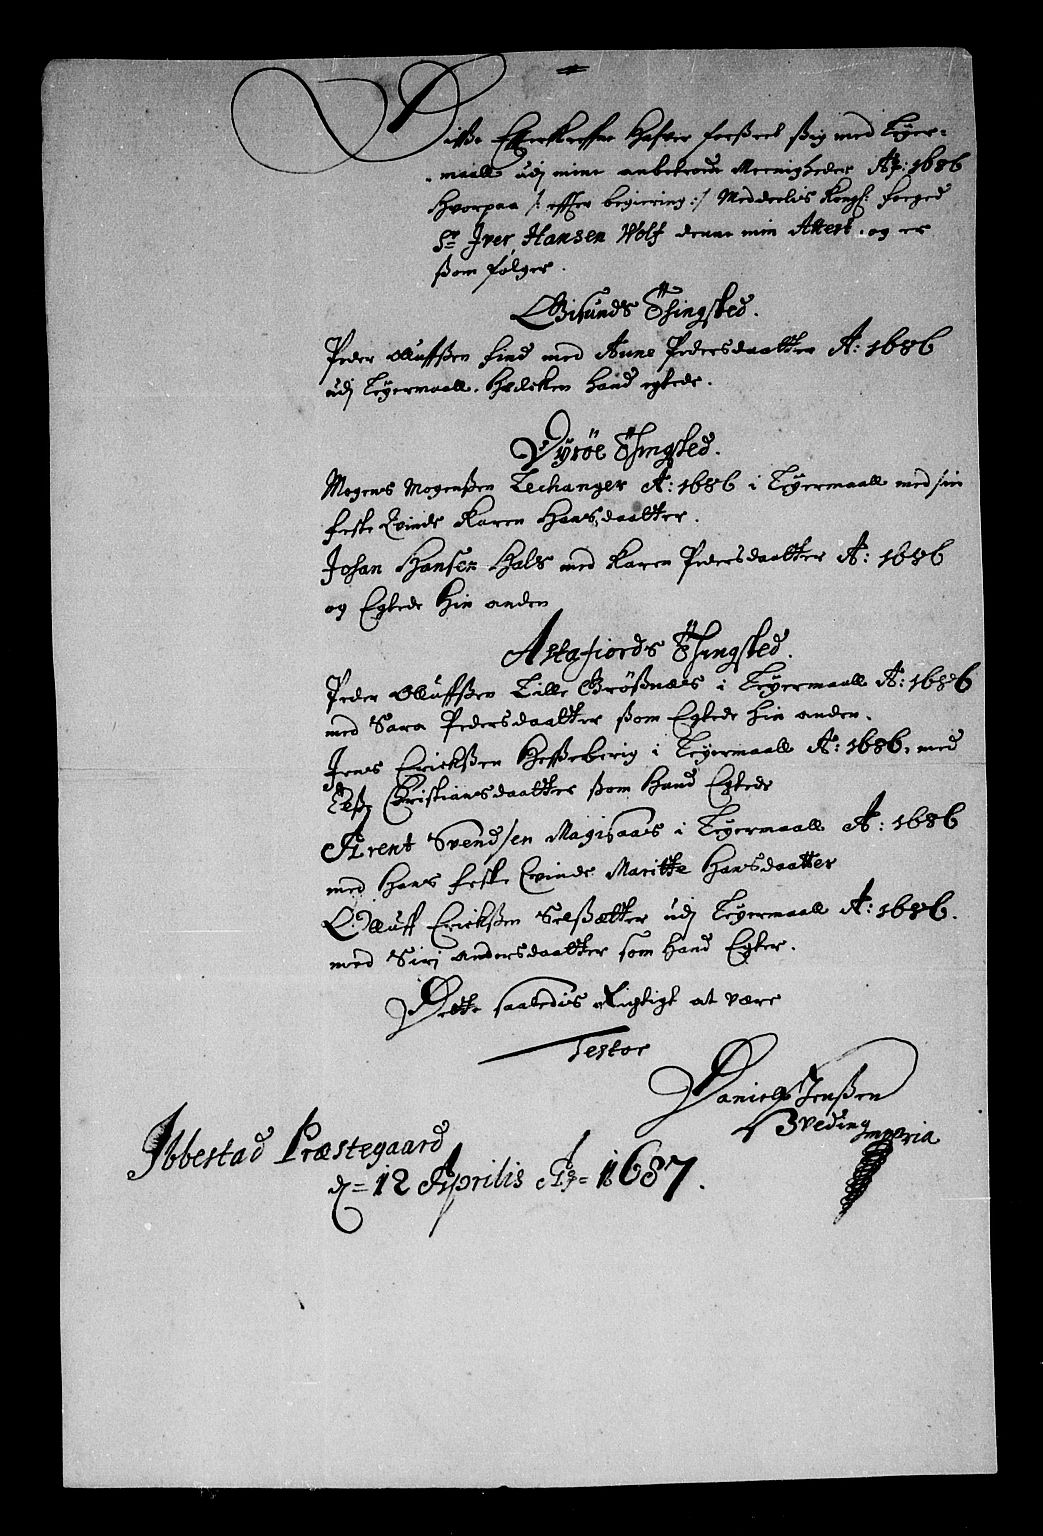 Disse Effterskrefne Hafver forseet sig med Leyer-
maall udj mine anbetroede Meenigheder Ao: 1686
Hvorpaa /: efter begiering :/ Meddeelis Kongl: foeged
Sr. Iver Hansen Wolf denne min Attest, og er
som følger.
Gisunds Thingsted.
Peder Olluffsen find med Anne Pedersdaatter A: 1686
udj Leyermaall. Hvilken hand egtede.
Dyrøe Thingsted.
Mogens Mogensen Lechanger A: 1686 i Leyermaall med sin
feste Qvinde Karen Hansdaatter.
Johan Hansen Hals med Karen Pedersdaatter A: 1686
og Egtede hin anden
Astafiords Thingsted.
Peder Olluffsen Lille i Leyermaall A: 1686
med Sara Pedersdaatter som Egtede hin anden.
Jens Erichsen Hesseberig i Leyermaall A: 1686, med
Christiansdaatter som hand Egtede
Arent Svendsen i Leyermaall A: 1686
med hans feste Qvinde Maritte Hansdaatter
Olluff Erichsen Selsætter udj Leyermaall A: 1686.
med Siri Andersdaatter som hand Egter.
Dette saaledis Rigtigt at være
Testor
Daniel Jensen
Hveding mpria
Ibbestad Præstegaard
d = 12 Aprilis Ao = 1687.